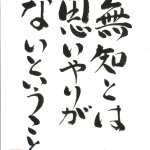 無知とは
思いやりが
ないということ